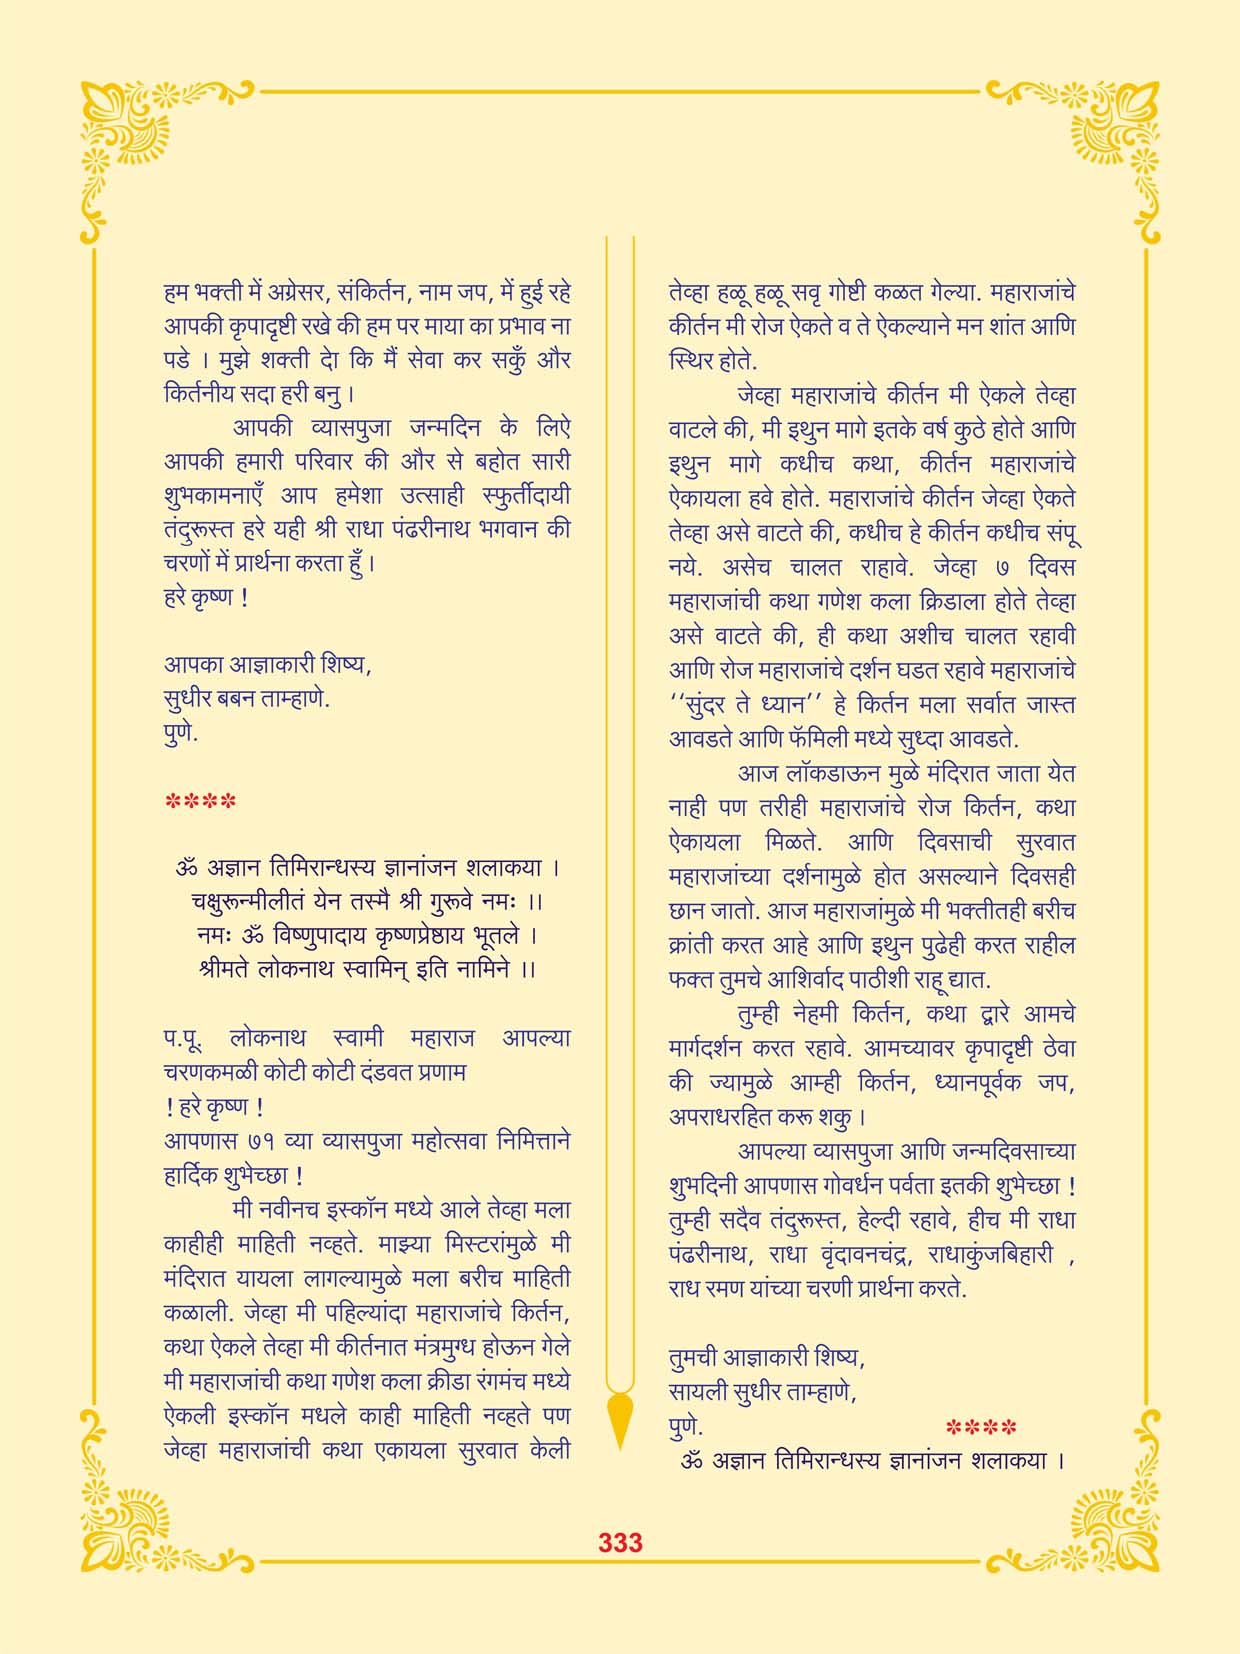 हम भक्ती में अग्रेसर, संकिर्तन, नाम जप, में हुई रहे
आपकी कृपादृष्टी रखे की हम पर माया का प्रभाव ना
पडे । मुझे शक्ती देा कि मैं सेवा कर सकुँ और
किर्तनीय सदा हरी बनु ।
आपकी व्यासपुजा जन्मदिन के लिऐ
आपकी हमारी परिवार की और से बहोत सारी
शुभकामनाएँ आप हमेशा उत्साही स्फुर्तीदायी
तंदुरूस्त हरे यही श्री राधा पंढरीनाथ भगवान की
चरणों में प्रार्थना करता हुँ ।
हरे कृष्ण !
आपका आज्ञाकारी शिष्य,
सुधीर बबन ताम्हाणे.
पुणे.
****
ॐ अज्ञान तिमिरान्धस्य ज्ञानांजन शलाकया ।
चक्षुरून्मीलीतं येन तस्मै श्री गुरूवे नमः ।।
नमः ॐ विष्णुपादाय कृष्णप्रेष्ठाय भूतले ।
श्रीमते लोकनाथ स्वामिन् इति नामिने ।।
प.पू. लोकनाथ स्वामी महाराज आपल्या
चरणकमळी कोटी कोटी दंडवत प्रणाम
! हरे कृष्ण !
आपणास ७१ व्या व्यासपुजा महोत्सवा निमित्ताने
हार्दिक शुभेच्छा !
मी नवीनच इस्कॉन मध्ये आले तेव्हा मला
काहीही माहिती नव्हते. माझ्या मिस्टरांमुळे मी
मंदिरात यायला लागल्यामुळे मला बरीच माहिती
कळाली. जेव्हा मी पहिल्यांदा महाराजांचे किर्तन,
कथा ऐकले तेव्हा मी कीर्तनात मंत्रमुग्ध होऊन गेले
मी महाराजांची कथा गणेश कला क्रीडा रंगमंच मध्ये
ऐकली इस्कॉन मधले काही माहिती नव्हते पण
जेव्हा महाराजांची कथा एकायला सुरवात केली
तेव्हा हळू हळू सवृ गोष्टी कळत गेल्या. महाराजांचे
कीर्तन मी रोज ऐकते व ते ऐकल्याने मन शांत आणि
स्थिर होते.
जेव्हा महाराजांचे कीर्तन मी ऐकले तेव्हा
वाटले की, मी इथुन मागे इतके वर्ष कुठे होते आणि
इथुन मागे कधीच कथा, कीर्तन महाराजांचे
ऐकायला हवे होते. महाराजांचे कीर्तन जेव्हा ऐकते
तेव्हा असे वाटते की, कधीच हे कीर्तन कधीच संपू
नये. असेच चालत राहावे. जेव्हा ७ दिवस
महाराजांची कथा गणेश कला क्रिडाला होते तेव्हा
असे वाटते की, ही कथा अशीच चालत रहावी
आणि रोज महाराजांचे दर्शन घडत रहावे महाराजांचे
‘‘सुंदर ते ध्यान’’ हे किर्तन मला सर्वात जास्त
आवडते आणि फॅमिली मध्ये सुध्दा आवडते.
आज लॉकडाऊन मुळे मंदिरात जाता येत
नाही पण तरीही महाराजांचे रोज किर्तन, कथा
ऐकायला मिळते. आणि दिवसाची सुरवात
महाराजांच्या दर्शनामुळे होत असल्याने दिवसही
छान जातो. आज महाराजांमुळे मी भक्तीतही बरीच
क्रांती करत आहे आणि इथुन पुढेही करत राहील
फक्त तुमचे आशिर्वाद पाठीशी राहू द्यात.
तुम्ही नेहमी किर्तन, कथा द्वारे आमचे
मार्गदर्शन करत रहावे. आमच्यावर कृपादृष्टी ठेवा
की ज्यामुळे आम्ही किर्तन, ध्यानपूर्वक जप,
अपराधरहित करू शकु ।
आपल्या व्यासपुजा आणि जन्मदिवसाच्या
शुभदिनी आपणास गोवर्धन पर्वता इतकी शुभेच्छा !
तुम्ही सदैव तंदुरूस्त, हेल्दी रहावे, हीच मी राधा
पंढरीनाथ, राधा वृंदावनचंद्र, राधाकुंजबिहारी ,
राध रमण यांच्या चरणी प्रार्थना करते.
तुमची आज्ञाकारी शिष्य,
सायली सुधीर ताम्हाणे,
पुणे. ****
ॐ अज्ञान तिमिरान्धस्य ज्ञानांजन शलाकया ।
333